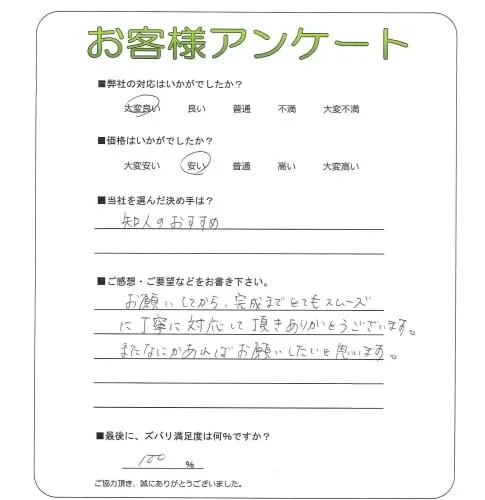 お客様アンケート
■弊社の対応はいかがでしたか？
大変良い 良い 普通 不満 大変不満
■価格はいかがでしたか？
大変安い 安い 普通 高い 大変高い
■当社を選んだ決め手は？
知人のおすすめ
■ご感想・ご要望などをお書き下さい。
お願いしてから、完成までとてもスムーズ
に丁寧に対応して頂きありがとうございます。
またなにかあればお願いしたいと思います。
■最後に、ズバリ満足度は何％ですか？
100 ％
ご協力頂き、誠にありがとうございました。